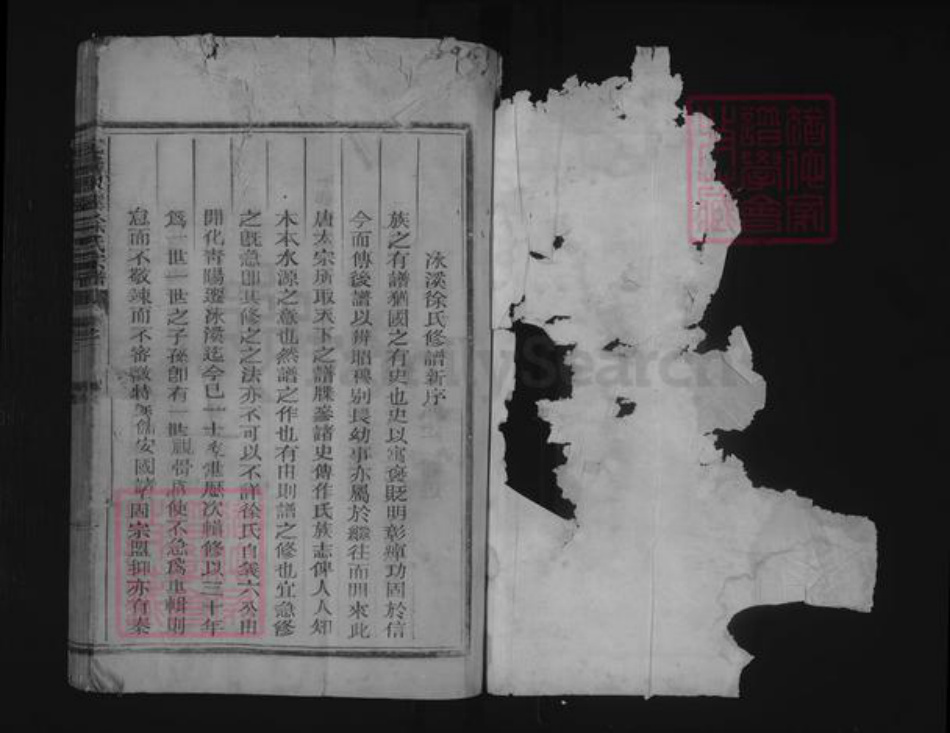 氷溪徐氏修譜新序
族之有譜猶國之有史也史以寓褒貶明彰癉功固於信
今而傳後譜以辨昭穆别長幼事亦屬於繼往而開來此
唐太宗所取天下之譜牒參諸史傳作氏族志俾人人知
木本水源之意也然譜之作也有由則譜之修也宜急修
之既急即其修之之法亦不可以不詳徐氏自義六公由
開化靑陽遷氷溪迄今已二十來世歷次輯修以三十年
爲一世一世之子孫卽有一世親情使不急爲重輯則
怠而不敬竦而不審微特無儒安國諸固宗盟抑亦有泰
FamilySearch